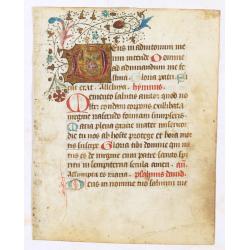 Deus in adiutorium me
um intende Domine
ad adiuvandum me fe
stina Gloria patri
erat Alleluya hymnus
Memento salutis auctor quod
nostri quondam corporis ex illibata
virgine nascendo formam sumpseris
Maria plena gratie mater misericor
die tu nos ab hoste protege et hora mor
tis suscipe Gloria tibi domine qui na
tus es de virgine cum patre sancto spi
tu in sempiterna secula amen
Assumpta es maria psalmus david
Deus in nomine tuo salvum me